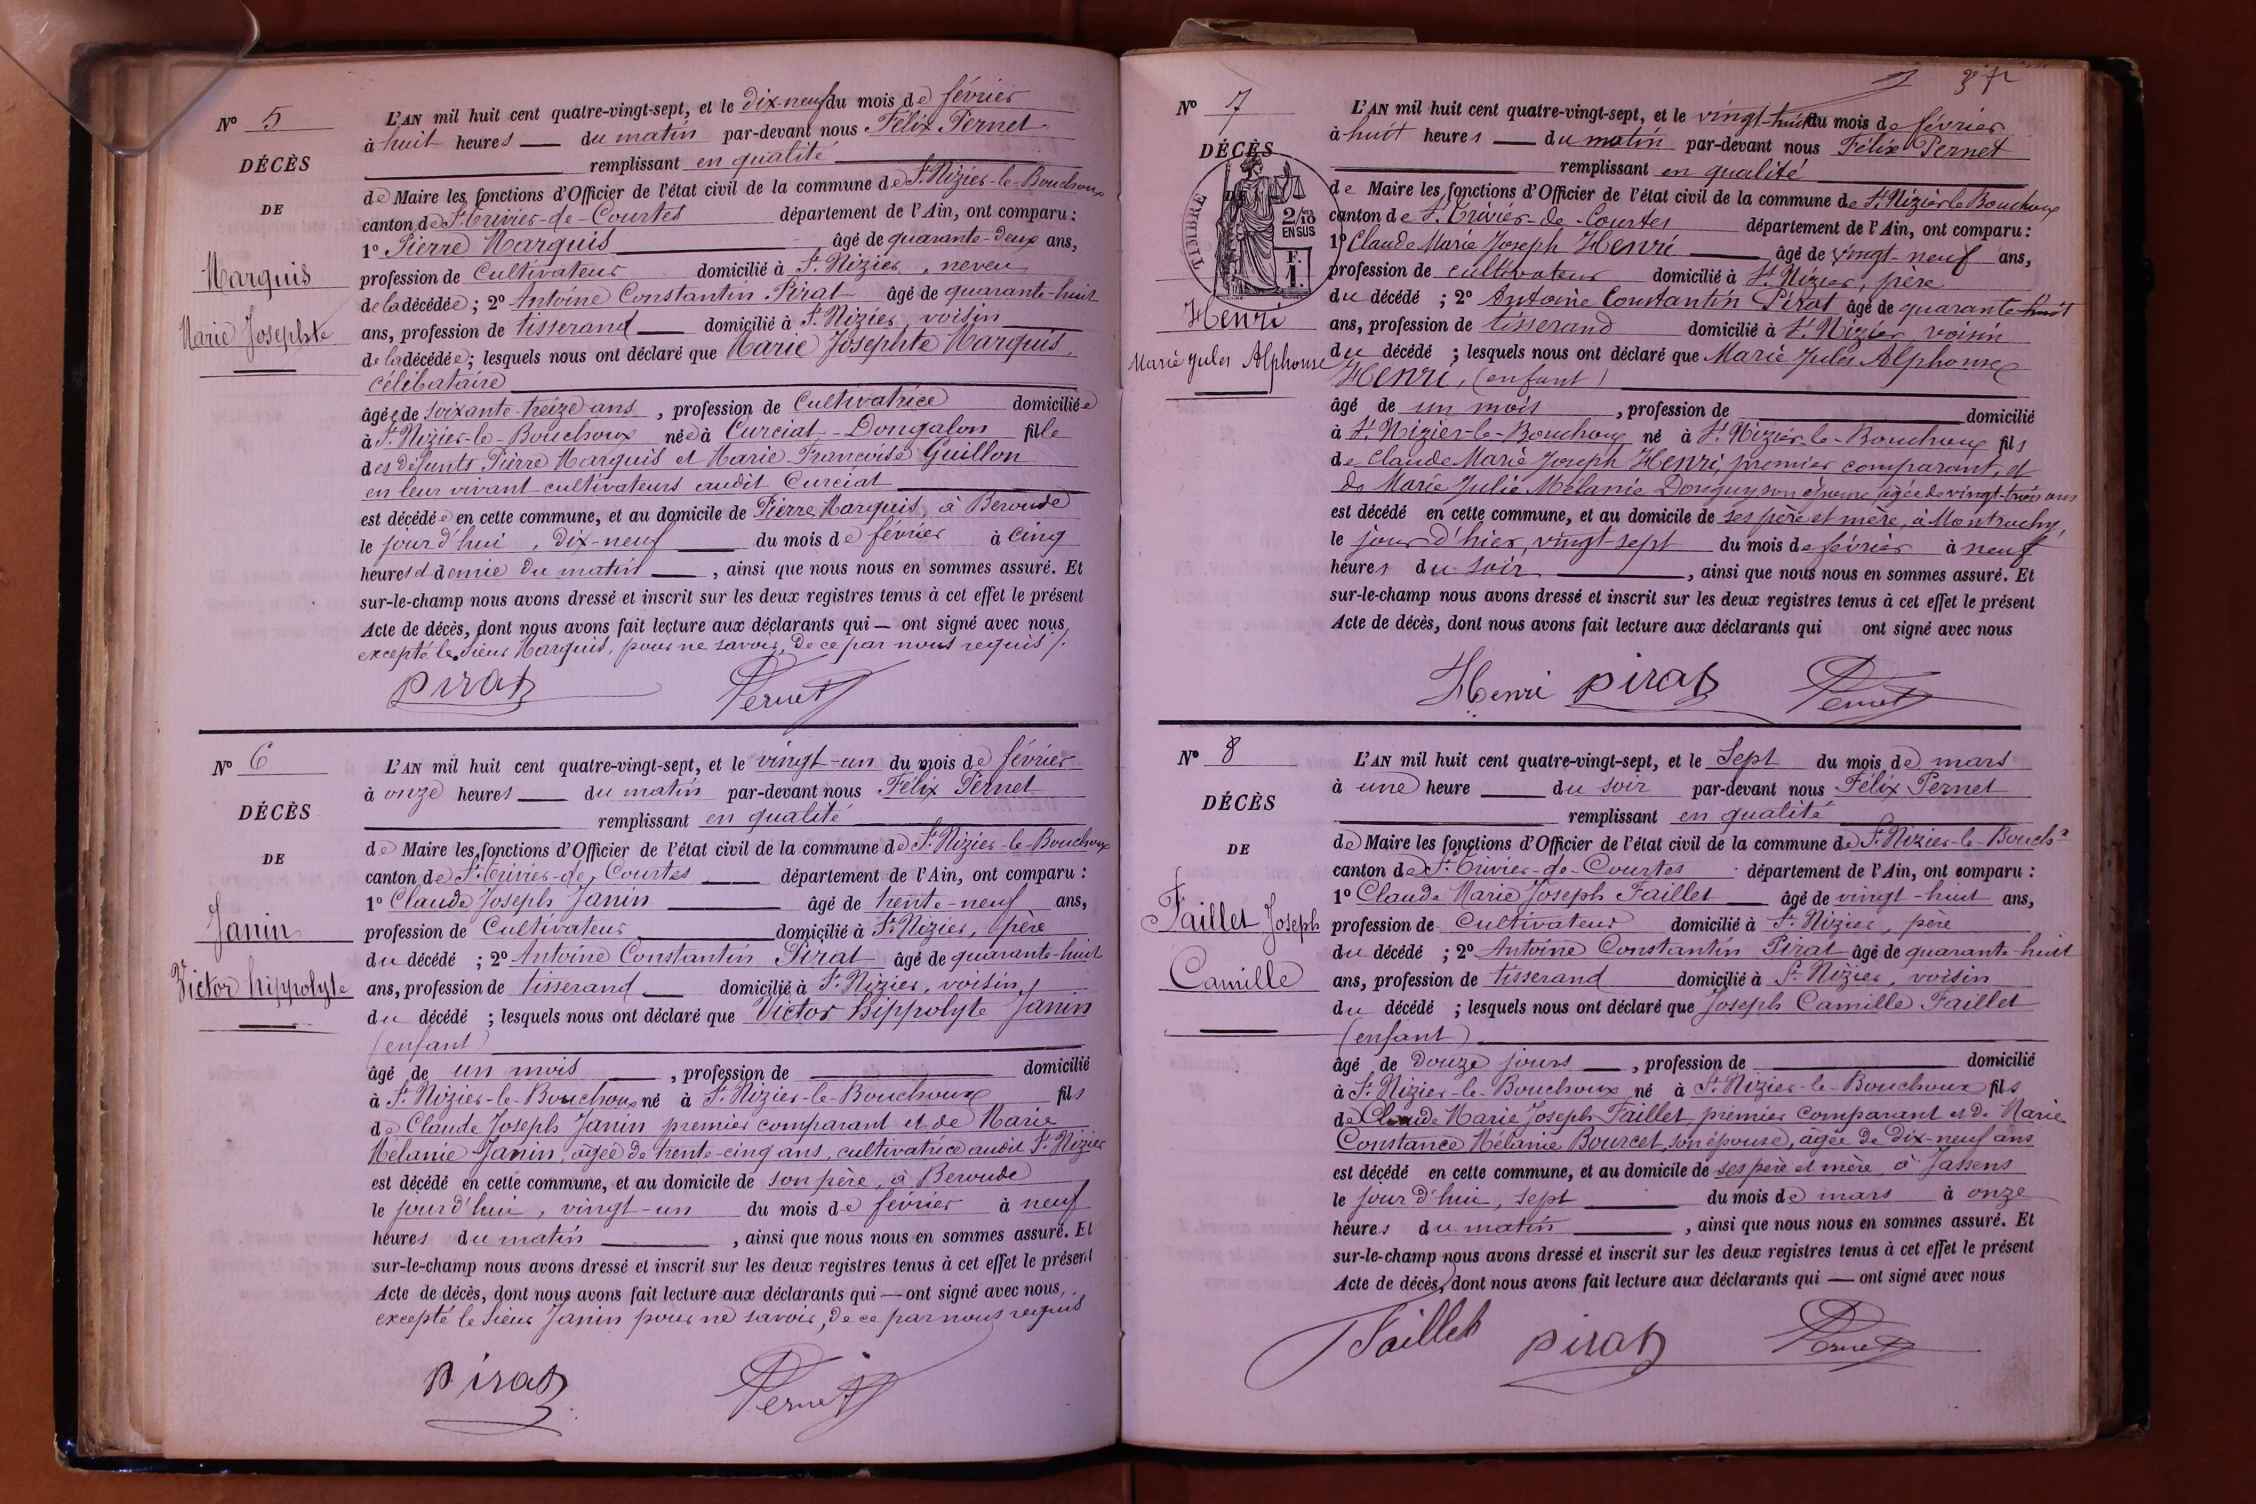 N° 5
DÉCÈS
DE
Marquis
Marie Josephte
L'AN mil huit cent quatre-vingt-sept, et le dix-neuf du mois de février
à huit heures du matin par-devant nous Félix Pernet
remplissant en qualité
de Maire les fonctions d'Officier de l'état civil de la commune de St Nizier-le-Bouchoux
canton de St Trivier-de-Courtes département de l'Ain, ont comparu :
1° Pierre Marquis âgé de quarante-deux ans,
profession de Cultivateur domicilié à St Nizier, neveu
de la décédée ; 2° Antoine Constantin Pirat âgé de quarante-huit
ans, profession de tisserand domicilié à St Nizier voisin
de la décédée ; lesquels nous ont déclaré que Marie Josephte Marquis,
célibataire
âgée de soixante-treize ans , profession de Cultivatrice domiciliée
à St Nizier-le-Bouchoux née à Curciat-Dongalon fille
des défunts Pierre Marquis et Marie Françoise Guillon
en leur vivant cultivateurs audit Curciat
est décédée en cette commune, et au domicile de Pierre Marquis, à Beroude
le jour d'hui, dix-neuf du mois de février à cinq
heures et demie du matin , ainsi que nous nous en sommes assuré. Et
sur-le-champ nous avons dressé et inscrit sur les deux registres tenus à cet effet le présent
Acte de décès, dont nous avons fait lecture aux déclarants qui — ont signé avec nous,
excepté le Sieur Marquis, pour ne savoir, de ce par nous requis /.
Pirat Pernet
N° 6
DÉCÈS
DE
Janin
Victor hippolyte
L'AN mil huit cent quatre-vingt-sept, et le vingt-un du mois de février
à onze heures du matin par-devant nous Félix Pernet
remplissant en qualité
de Maire les fonctions d'Officier de l'état civil de la commune de St Nizier-le-Bouchoux
canton de St Trivier-de-Courtes département de l'Ain, ont comparu :
1° Claude Joseph Janin âgé de trente-neuf ans,
profession de Cultivateur domicilié à St Nizier, père
du décédé ; 2° Antoine Constantin Pirat âgé de quarante-huit
ans, profession de tisserand domicilié à St Nizier, voisin
du décédé ; lesquels nous ont déclaré que Victor hippolyte Janin
(enfant)
âgé de un mois , profession de domicilié
à St Nizier-le-Bouchoux né à St Nizier-le-Bouchoux fils
de Claude Joseph Janin premier comparant et de Marie
Mélanie Janin, âgée de trente-cinq ans, cultivatrice audit St Nizier
est décédé en cette commune, et au domicile de son père, à Beroude
le jour d'hui, vingt-un du mois de février à neuf
heures du matin , ainsi que nous nous en sommes assuré. Et
sur-le-champ nous avons dressé et inscrit sur les deux registres tenus à cet effet le présent
Acte de décès, dont nous avons fait lecture aux déclarants qui — ont signé avec nous,
excepté le Sieur Janin pour ne savoir, de ce par nous requis
Pirat Pernet
N° 7
DÉCÈS
DE
TIMBRE
2/10 EN SUS
F. 1.
Henri
Marie Jules Alphonse
L'AN mil huit cent quatre-vingt-sept, et le vingt-huit du mois de février
à huit heures du matin par-devant nous Félix Pernet
remplissant en qualité
de Maire les fonctions d'Officier de l'état civil de la commune de St Nizier le Bouchoux
canton de St Trivier-de-Courtes département de l'Ain, ont comparu :
1° Claude Marie Joseph Henri âgé de vingt-neuf ans,
profession de cultivateur domicilié à St Nizier, père
du décédé ; 2° Antoine Constantin Pirat âgé de quarante-huit
ans, profession de tisserand domicilié à St Nizier voisin
du décédé ; lesquels nous ont déclaré que Marie Jules Alphonse
Henri, (enfant)
âgé de un mois , profession de domicilié
à St Nizier-le-Bouchoux né à St Nizier-le-Bouchoux fils
de Claude Marie Joseph Henri, premier comparant, et
de Marie Julie Mélanie Donguy son épouse âgée de vingt-trois ans
est décédé en cette commune, et au domicile de ses père et mère, à Montrachy,
le jour d'hier, vingt sept du mois de février à neuf
heures du soir , ainsi que nous nous en sommes assuré. Et
sur-le-champ nous avons dressé et inscrit sur les deux registres tenus à cet effet le présent
Acte de décès, dont nous avons fait lecture aux déclarants qui ont signé avec nous
Henri Pirat Pernet
N° 8
DÉCÈS
DE
Faillet Joseph
Camille
L'AN mil huit cent quatre-vingt-sept, et le Sept du mois de mars
à une heure du soir par-devant nous Félix Pernet
remplissant en qualité
de Maire les fonctions d'Officier de l'état civil de la commune de St Nizier-le-Bouchx
canton de St Trivier-de-Courtes département de l'Ain, ont comparu :
1° Claude Marie Joseph Faillet âgé de vingt-huit ans,
profession de Cultivateur domicilié à St Nizier, père
du décédé ; 2° Antoine Constantin Pirat âgé de quarante-huit
ans, profession de tisserand domicilié à St Nizier, voisin
du décédé ; lesquels nous ont déclaré que Joseph Camille Faillet
(enfant)
âgé de douze jours , profession de domicilié
à St Nizier-le-Bouchoux né à St Nizier-le-Bouchoux fils
de Claude Marie Joseph Faillet premier comparant et de Marie
Constance Mélanie Bourcet, son épouse, âgée de dix-neuf ans
est décédé en cette commune, et au domicile de ses père et mère à Jassens
le jour d'hui, sept du mois de mars à onze
heures du matin , ainsi que nous nous en sommes assuré. Et
sur-le-champ nous avons dressé et inscrit sur les deux registres tenus à cet effet le présent
Acte de décès, dont nous avons fait lecture aux déclarants qui — ont signé avec nous
Faillet Pirat Pernet